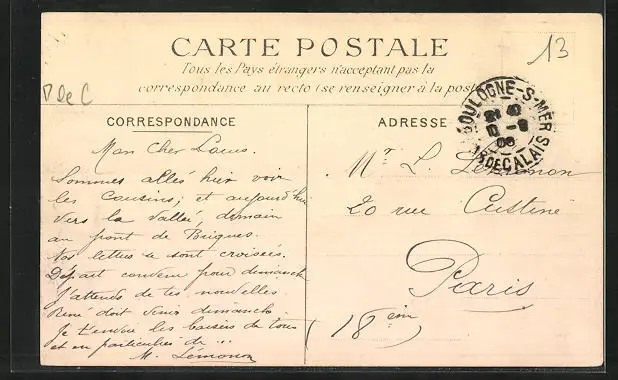 CARTE POSTALE
Tous les Pays étrangers n'acceptant pas la
correspondance au recto (se renseigner à la poste
13
P de C
CORRESPONDANCE
ADRESSE
BOULOGNE-S-MER
PAS DE CALAIS
Mon Cher
Sommes allés hier voir
les Cousins; et aujourd'hui
vers la vallée, demain
au pont de Briques.
Nos lettres se sont croisées.
Départ convenu pour dimanche
J'attends de tes nouvelles
René doit venir dimanche
Je t'envoie les baisers de tous
et en particulier de ...
M. Lémonon
Mr. L.
20 rue Custine
Paris
(18em)